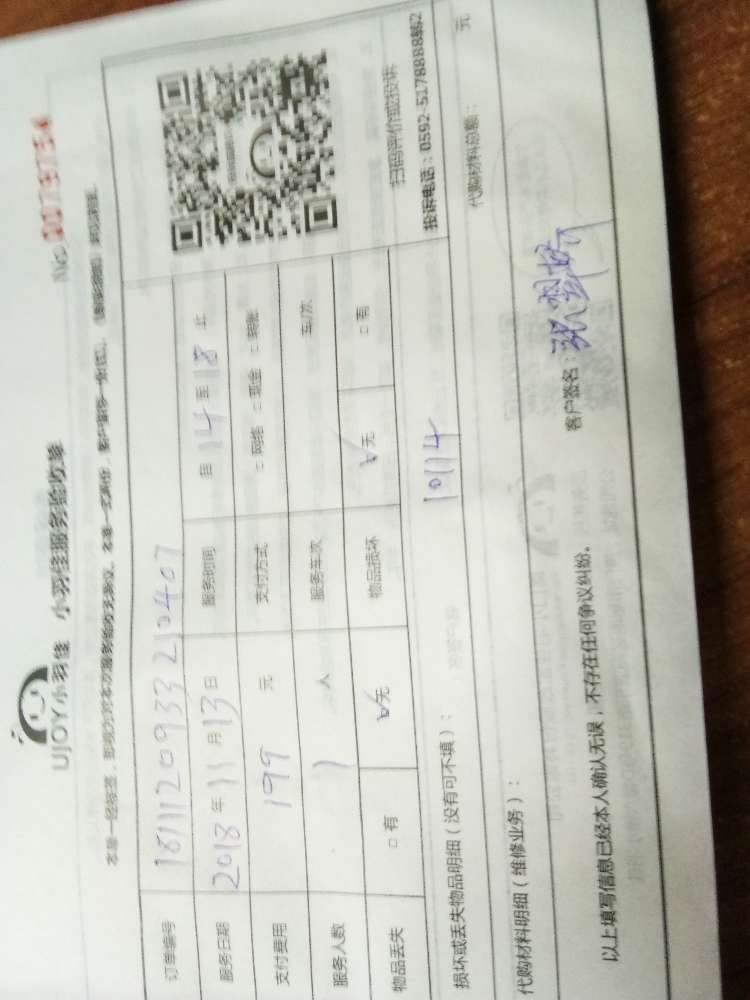 UJOY小羽佳 小羽佳服务验收单
No.
本单一经签字，即视为对本次服务验收无异议。本单一式两份，客户留存一份
订单编号 1811120933210407
服务日期 2018年11月13日 服务时间 自14至18止
支付费用 199元 支付方式 □网络 □现金 □转账
服务人数 1人 服务车次 车/次
物品丢失 □有 ☑无 物品损坏 ☑无 □有
扫码评价或投诉
投诉电话：0592-5178888转2
损坏或丢失物品明细（没有可不填）：
10114
代购材料明细（维修业务）： 代购材料总额： 元
以上填写信息已经本人确认无误，不存在任何争议纠纷。
客户签名：